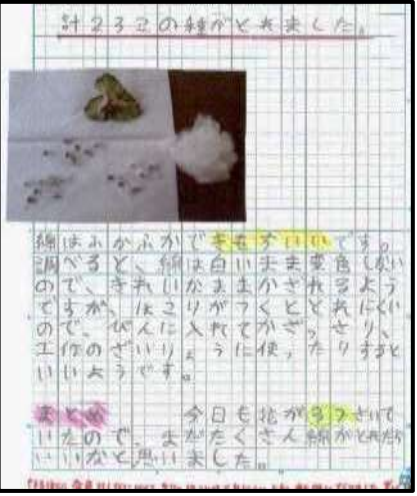 計232この種がとれました。
綿はふかふかできもちいいです。
調べると、綿は白いまま変色しない
ので、きれいなままかざれるよう
ですが、ほこりがつくととれにくい
ので、びんに入れてかざったり、
工作のざいりょうに使ったりすると
いいようです。
まとめ 今日も花が3つさいて
いたので、まだたくさん綿がとれたら
いいなと思いました。